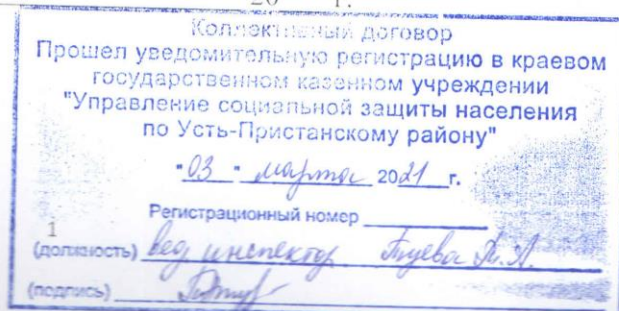 20 г.
Коллективный договор
Прошел уведомительную регистрацию в краевом
государственном казенном учреждении
"Управление социальной защиты населения
по Усть-Пристанскому району"
"03" марта 2021 г.
Регистрационный номер
1
(должность) вед инспектор
(подпись)